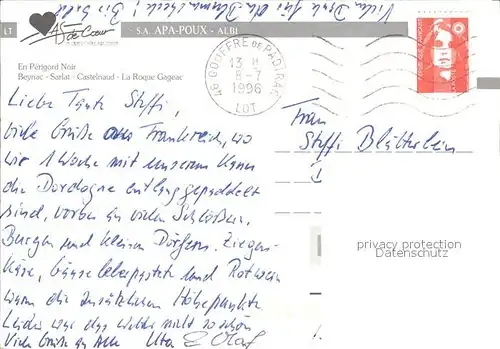 Vielen Dank für die
bis bald
LT
AS de Cœur
S.A. APA-POUX - ALBI
En Périgord Noir
Beynac - Sarlat - Castelnaud - La Roque Gageac
46 GOUFFRE DE PADIRAC
13 H
8-7
1996
LOT
Liebe Tante Steffi,
viele Grüße aus Frankreich, wo
wir 1 Woche mit unserem Kanu
die Dordogne entlanggepaddelt
sind, vorbei an vielen Schlößern,
Burgen und kleinen Dörfern. Ziegen-
käse, Gänseleberpastete und Rotwein
waren die zusätzlichen Höhepunkte.
Leider war das Wetter nicht so schön
Viele Grüße an Alle Uta & Olaf
Frau
Steffi Blätterlein
privacy protection
Datenschutz